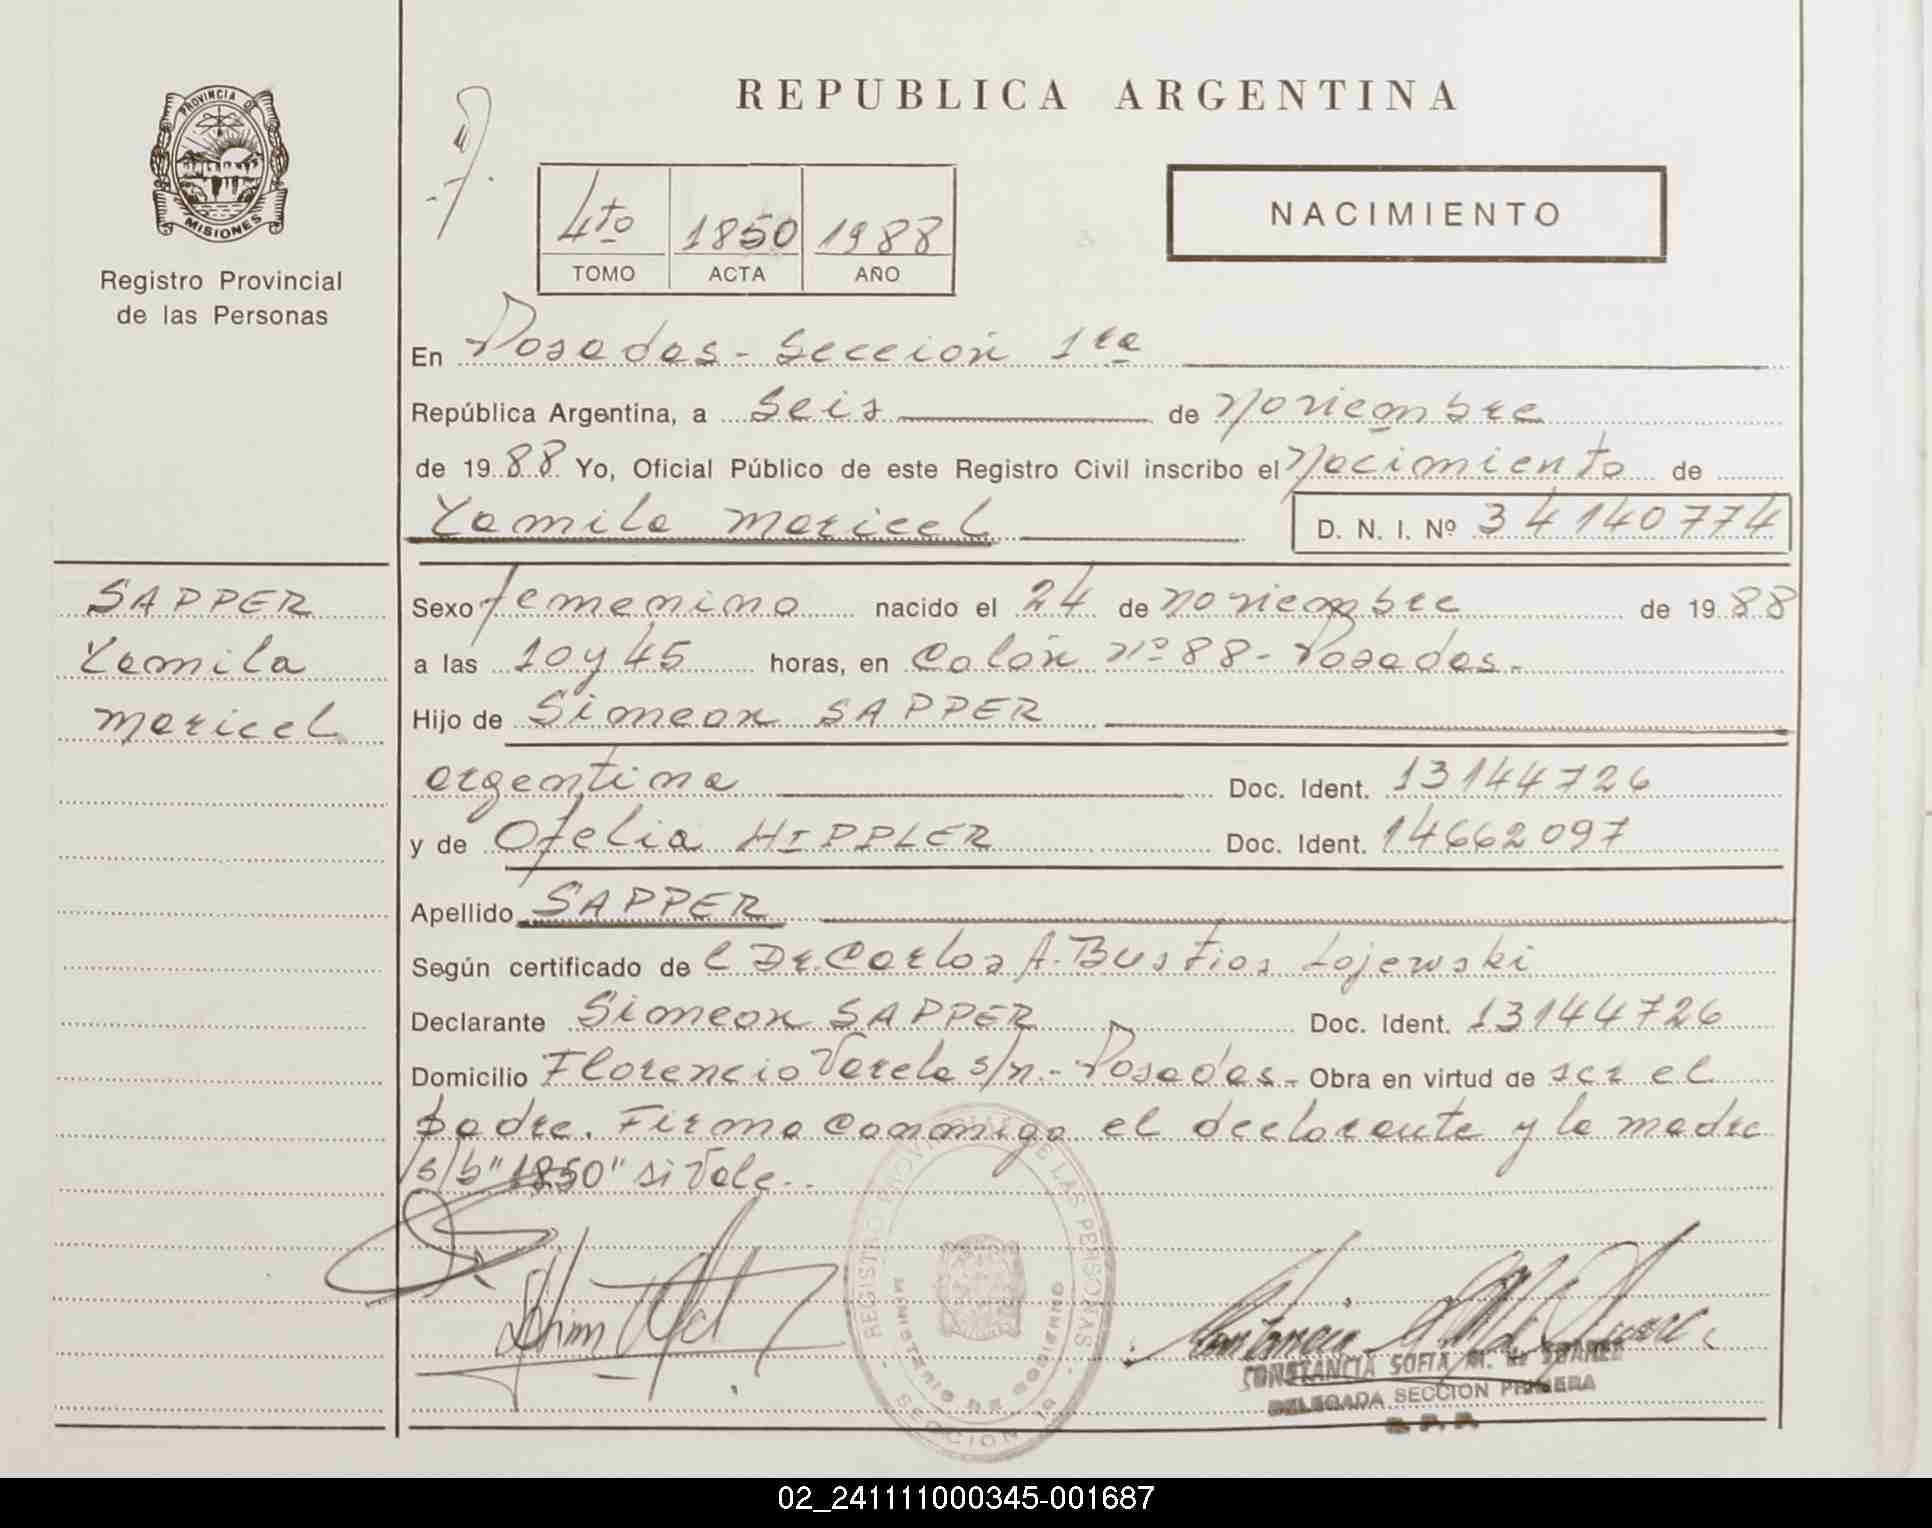 REPUBLICA ARGENTINA
PROVINCIA DE
MISIONES
Registro Provincial
de las Personas
4to 1850 1988
TOMO ACTA AÑO
NACIMIENTO
En Posadas - Sección 1ra
República Argentina, a seis de noviembre
de 1988 Yo, Oficial Público de este Registro Civil inscribo el nacimiento de
Yamila Maricel D. N. I. Nº 34140774
SAPPER
Yamila
Maricel
Sexo femenino nacido el 24 de noviembre de 1988
a las 10 y 45 horas, en Colón nº 88 - Posadas.
Hijo de Simeon SAPPER
argentina Doc. Ident. 13144726
y de Ofelia HIPPLER Doc. Ident. 14662097
Apellido SAPPER
Según certificado de l Dr. Carlos A. Bustios Lojewski
Declarante Simeon SAPPER Doc. Ident. 13144726
Domicilio Florencio Varela s/n. - Posadas - Obra en virtud de ser el
padre. Firma conmigo el declarante y la madre
s/b "1850" si vale.
REGISTRO PROVINCIAL DE LAS PERSONAS
MINISTERIO DE GOBIERNO
SECCION 1a
CONSTANCIA SOFIA M. de SUAREZ
DELEGADA SECCION PRIMERA
R. P. P.
02_241111000345-001687